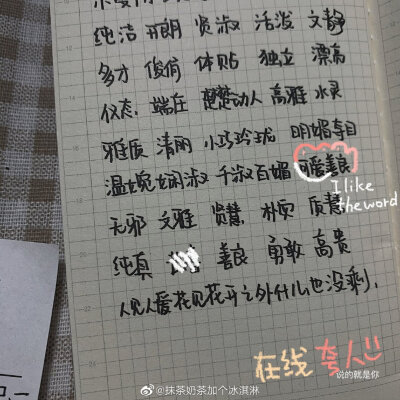 纯洁 开朗 贤淑 活泼 文静
多才 俊俏 体贴 独立 漂亮
仪态 端庄 楚楚动人 高雅 水灵
雅质 清丽 小巧玲珑 明媚
温婉娴淑 千淑百媚 可爱善良
I like
the word
无邪 文雅 贤慧 朴实 质慧
纯真 善良 勇敢 高贵
人见人爱花见花开之外什么也没剩.
在线夸人
说的就是你
@抹茶奶茶加个冰淇淋